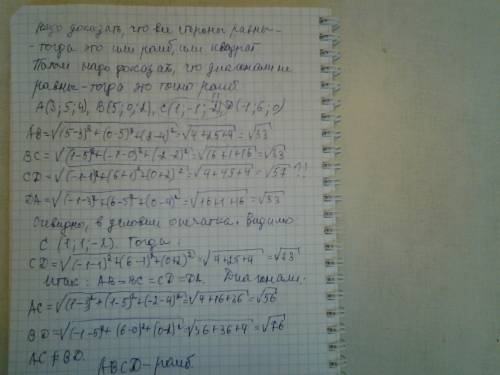 Надо доказать, что все стороны равны-
- тогда это или ромб, или квадрат
Потом надо доказать, что диагонали не
равны - тогда это точно ромб
A(3;5;4), B(5;0;2), C(1;-1;-2), D(-1;6;0)
AB=√(5-3)²+(0-5)²+(2-4)²=√4+25+4=√33
BC=√(1-5)²+(-1-0)²+(-2-2)²=√16+1+16=√33
CD=√(-1-1)²+(6+1)²+(0+2)²=√4+49+4=√57 ?!!
DA=√(-1-3)²+(6-5)²+(0-4)²=√16+1+16=√33
Очевидно, в условии опечатка. Видимо
C (1;1;-2). Тогда:
CD=√(-1-1)²+(6-1)²+(0+2)²=√4+25+4=√33
Итак: AB=BC=CD=DA. Диагонали:
AC=√(1-3)²+(1-5)²+(-2-4)²=√4+16+36=√56
BD=√(-1-5)²+(6-0)²+(0-2)²=√36+36+4=√76
AC≠BD.
ABCD-ромб.